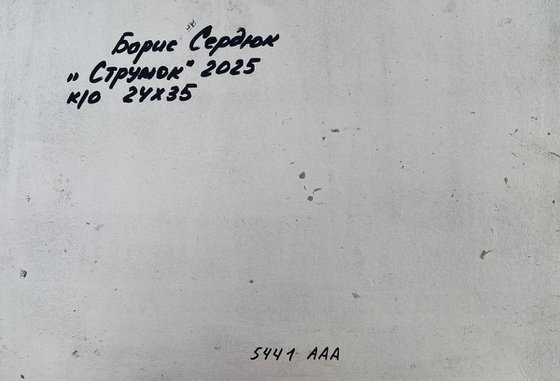 Борис Сердюк
„Струмок" 2025
к/о 24х35
5441 ААА